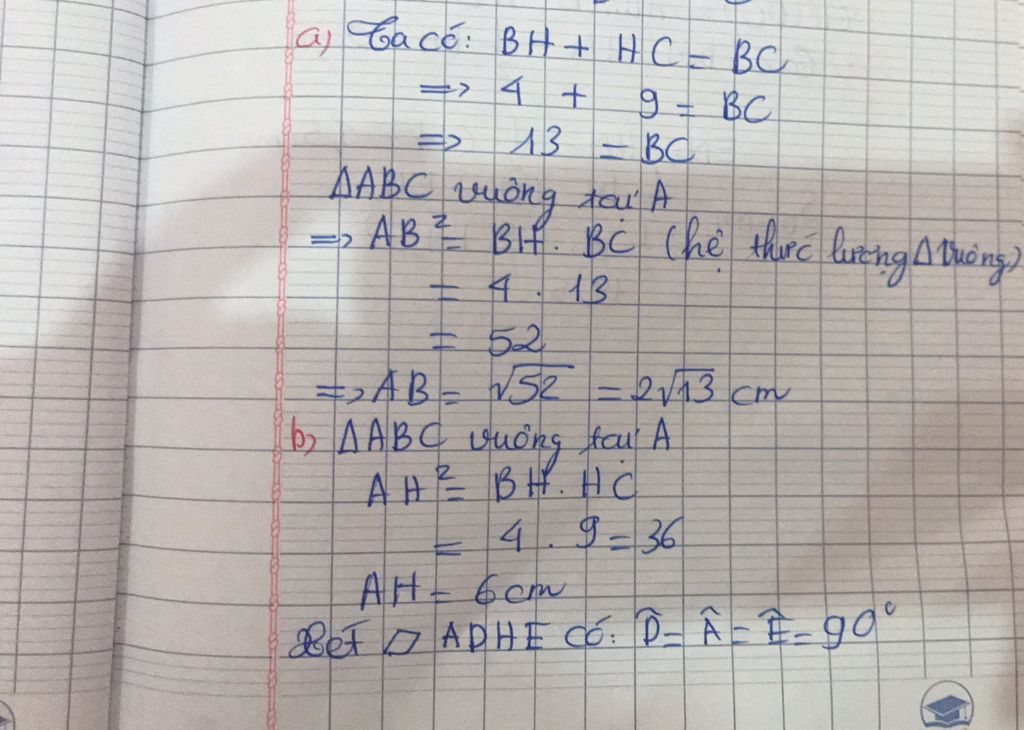 a) Ta có: BH + HC = BC
=> 4 + 9 = BC
=> 13 = BC
ΔABC vuông tại A
=> AB² = BH . BC (hệ thức lượng Δ vuông)
= 4 . 13
= 52
=> AB = √52 = 2√13 cm
b) ΔABC vuông tại A
AH² = BH . HC
= 4 . 9 = 36
AH = 6 cm
Xét ▱ ADHE có: D̂ = Â = Ê = 90°